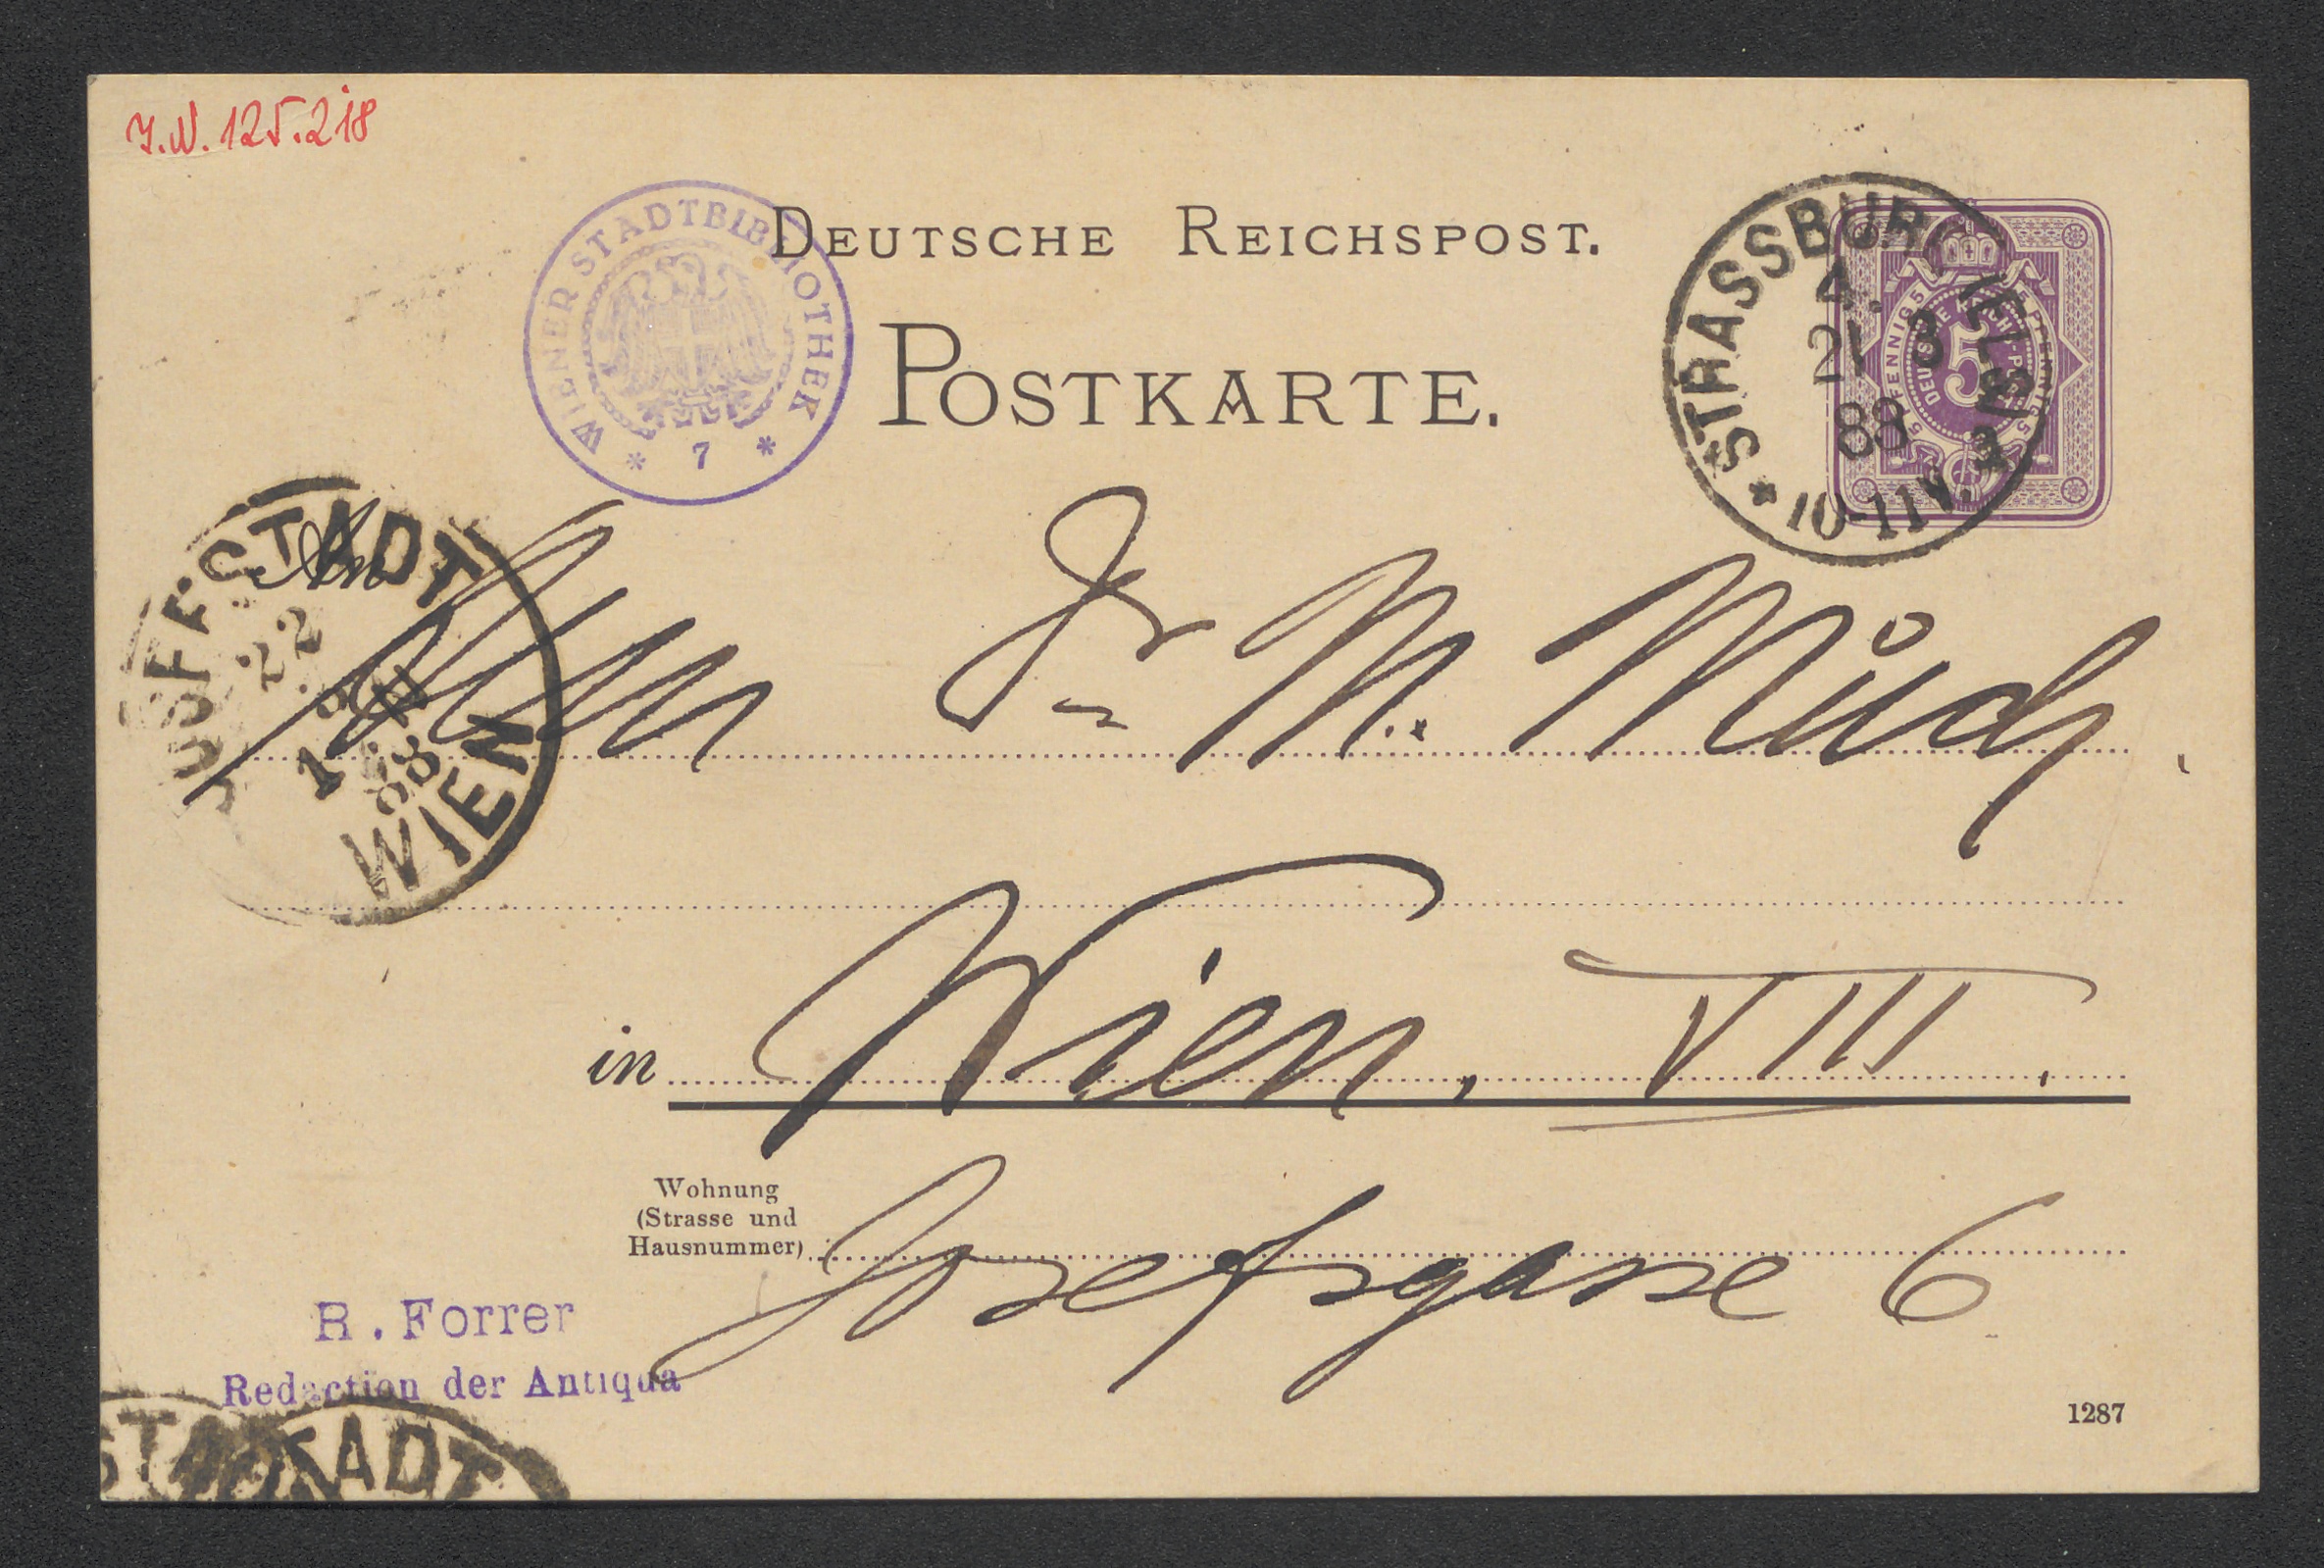 J.N. 125.218
WIENER STADTBIBLIOTHEK
* 7 *
DEUTSCHE REICHSPOST.
POSTKARTE.
STRASSBURG i. ELS.
21 3
88
* 10-11 V.
5 PFENNIG 5
DEUTSCHE REICHS-POST
5
JOSEFSTADT
22
88
WIEN
An
Herrn Dr M. Much
in Wien, VIII.
Wohnung
(Strasse und
Hausnummer)
Josefsgasse 6
R. Forrer
Redaction der Antiqua
STADT
1287